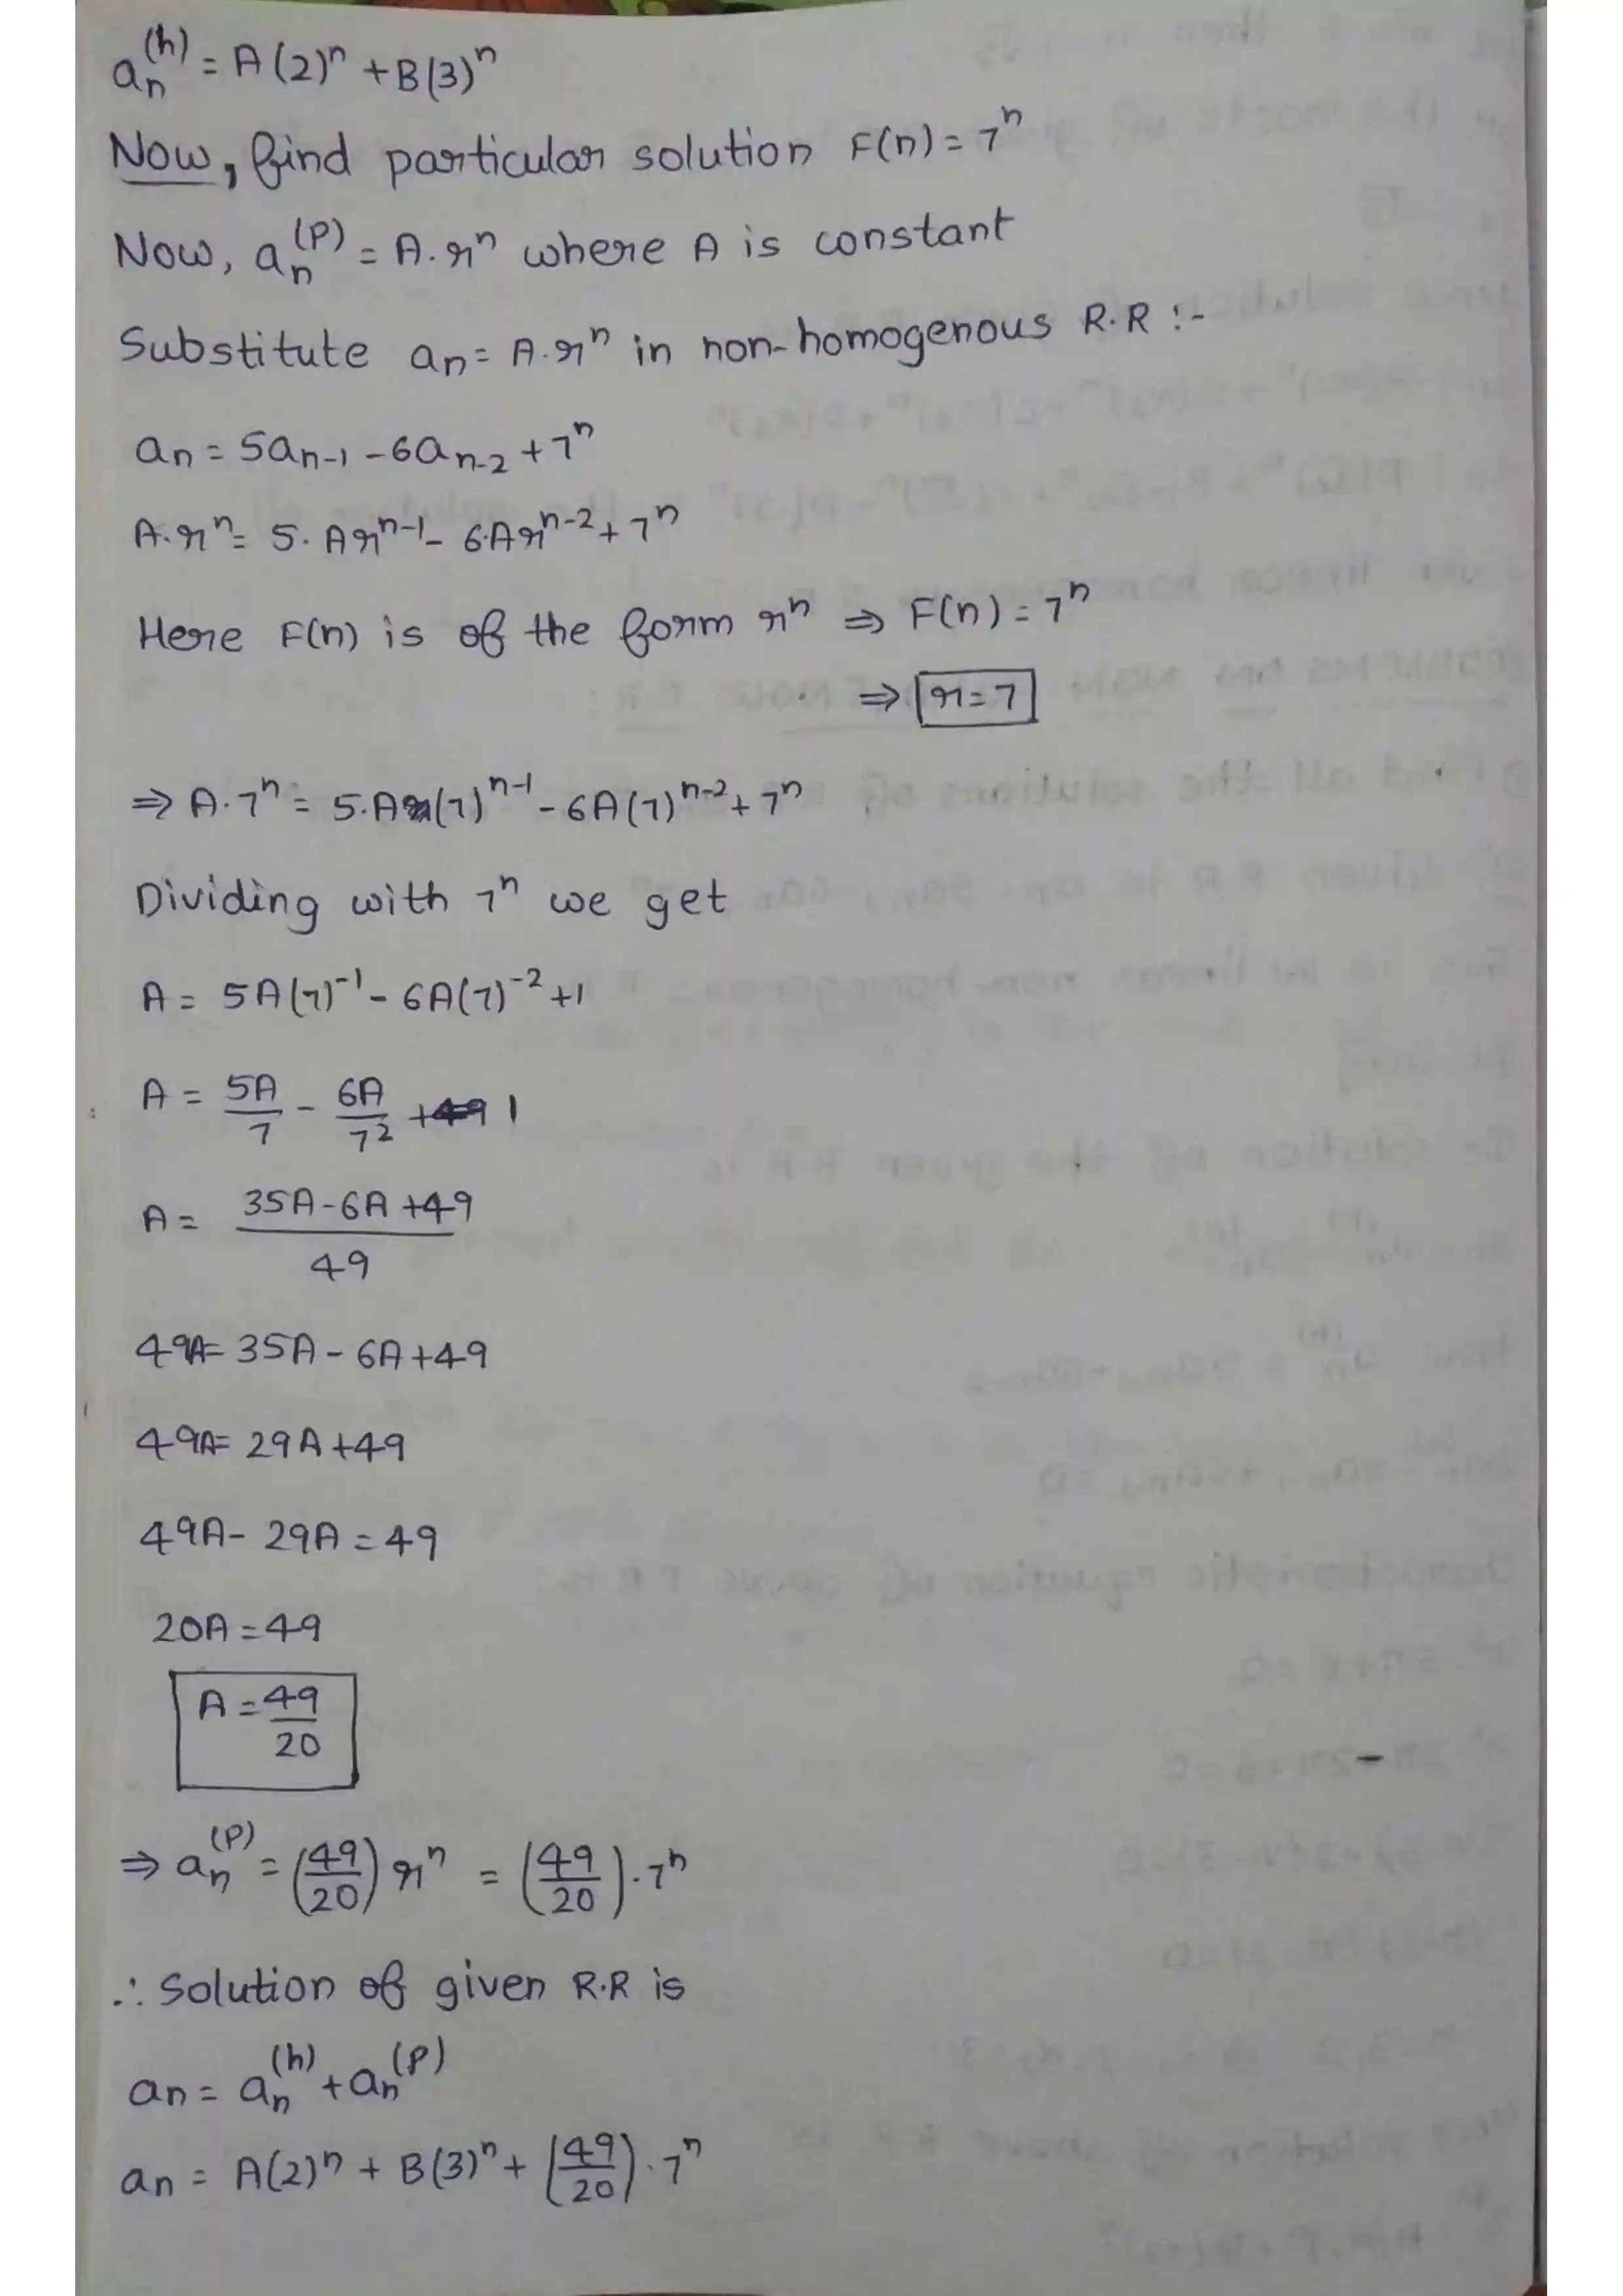 aₙ⁽ʰ⁾ = A(2)ⁿ + B(3)ⁿ
Now, find particular solution F(n) = 7ⁿ
Now, aₙ⁽ᵖ⁾ = A.rⁿ where A is constant
Substitute aₙ = A.rⁿ in non-homogenous R.R :-
aₙ = 5aₙ₋₁ - 6aₙ₋₂ + 7ⁿ
A.rⁿ = 5.Arⁿ⁻¹ - 6.Arⁿ⁻² + 7ⁿ
Here F(n) is of the form rⁿ ⇒ F(n) = 7ⁿ
⇒ r = 7
⇒ A.7ⁿ = 5.A(7)ⁿ⁻¹ - 6A(7)ⁿ⁻² + 7ⁿ
Dividing with 7ⁿ we get
A = 5A(7)⁻¹ - 6A(7)⁻² + 1
A = 5A/7 - 6A/7² + 1
A = (35A - 6A + 49)/49
49A = 35A - 6A + 49
49A = 29A + 49
49A - 29A = 49
20A = 49
A = 49/20
⇒ aₙ⁽ᵖ⁾ = (49/20) rⁿ = (49/20).7ⁿ
∴ Solution of given R.R is
aₙ = aₙ⁽ʰ⁾ + aₙ⁽ᵖ⁾
aₙ = A(2)ⁿ + B(3)ⁿ + (49/20).7ⁿ